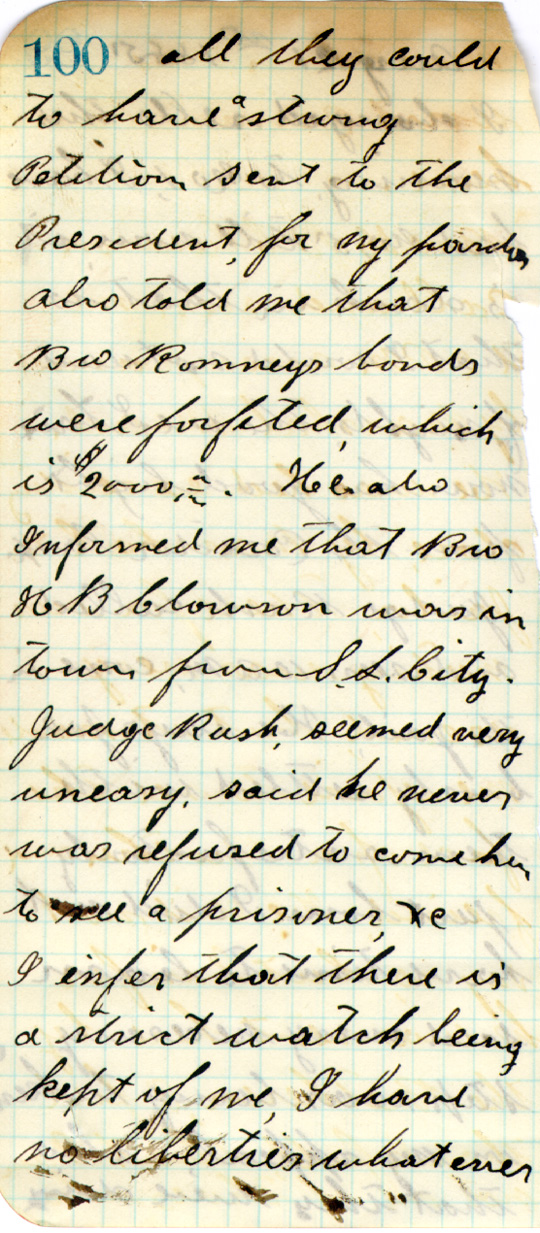 100 all they could
to have a strong
Petition sent to the
President, for my pardon
also told me that
Bro Romneys bonds
were forfited, which
is $2000,=. He also
Informed me that Bro
H B Clawson was in
town from S. L. City.
Judge Rush, seemed very
uneasy, said he never
was refused to come here
to see a prisoner, &c
I infer that there is
a strict watch being
kept of me, I have
no liberties whatever